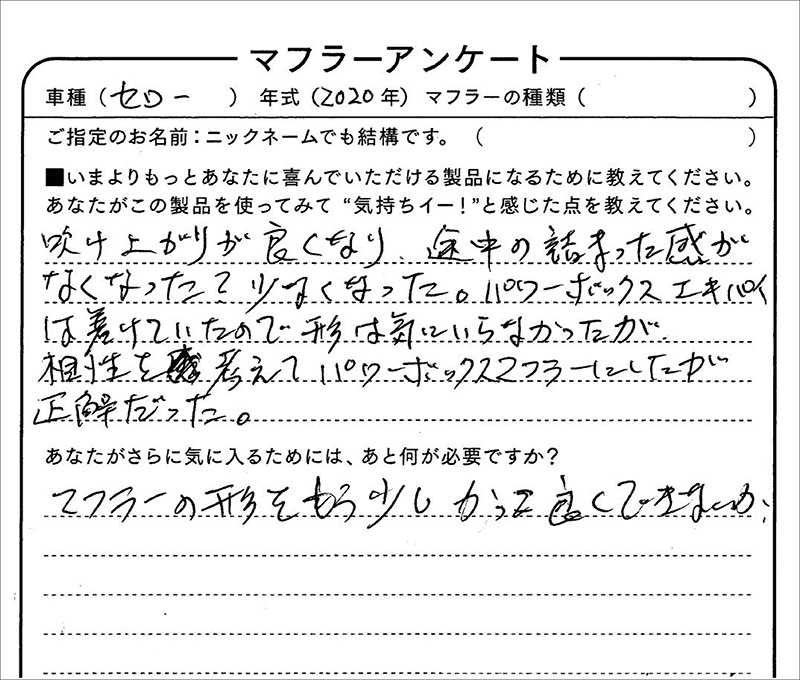 マフラーアンケート
車種（セロー　） 年式（2020年） マフラーの種類（　）
ご指定のお名前：ニックネームでも結構です。（　）
■いまよりもっとあなたに喜んでいただける製品になるために教えてください。
あなたがこの製品を使ってみて“気持ちイー！”と感じた点を教えてください。
吹け上がりが良くなり、途中の詰まった感が
なくなった？少なくなった。パワーボックスエキパイ
は着けていたので形は気にいらなかったが、
相性を考えてパワーボックスマフラーにしたが
正解だった。
あなたがさらに気に入るためには、あと何が必要ですか？
マフラーの形をもう少しかっこ良くできないか？